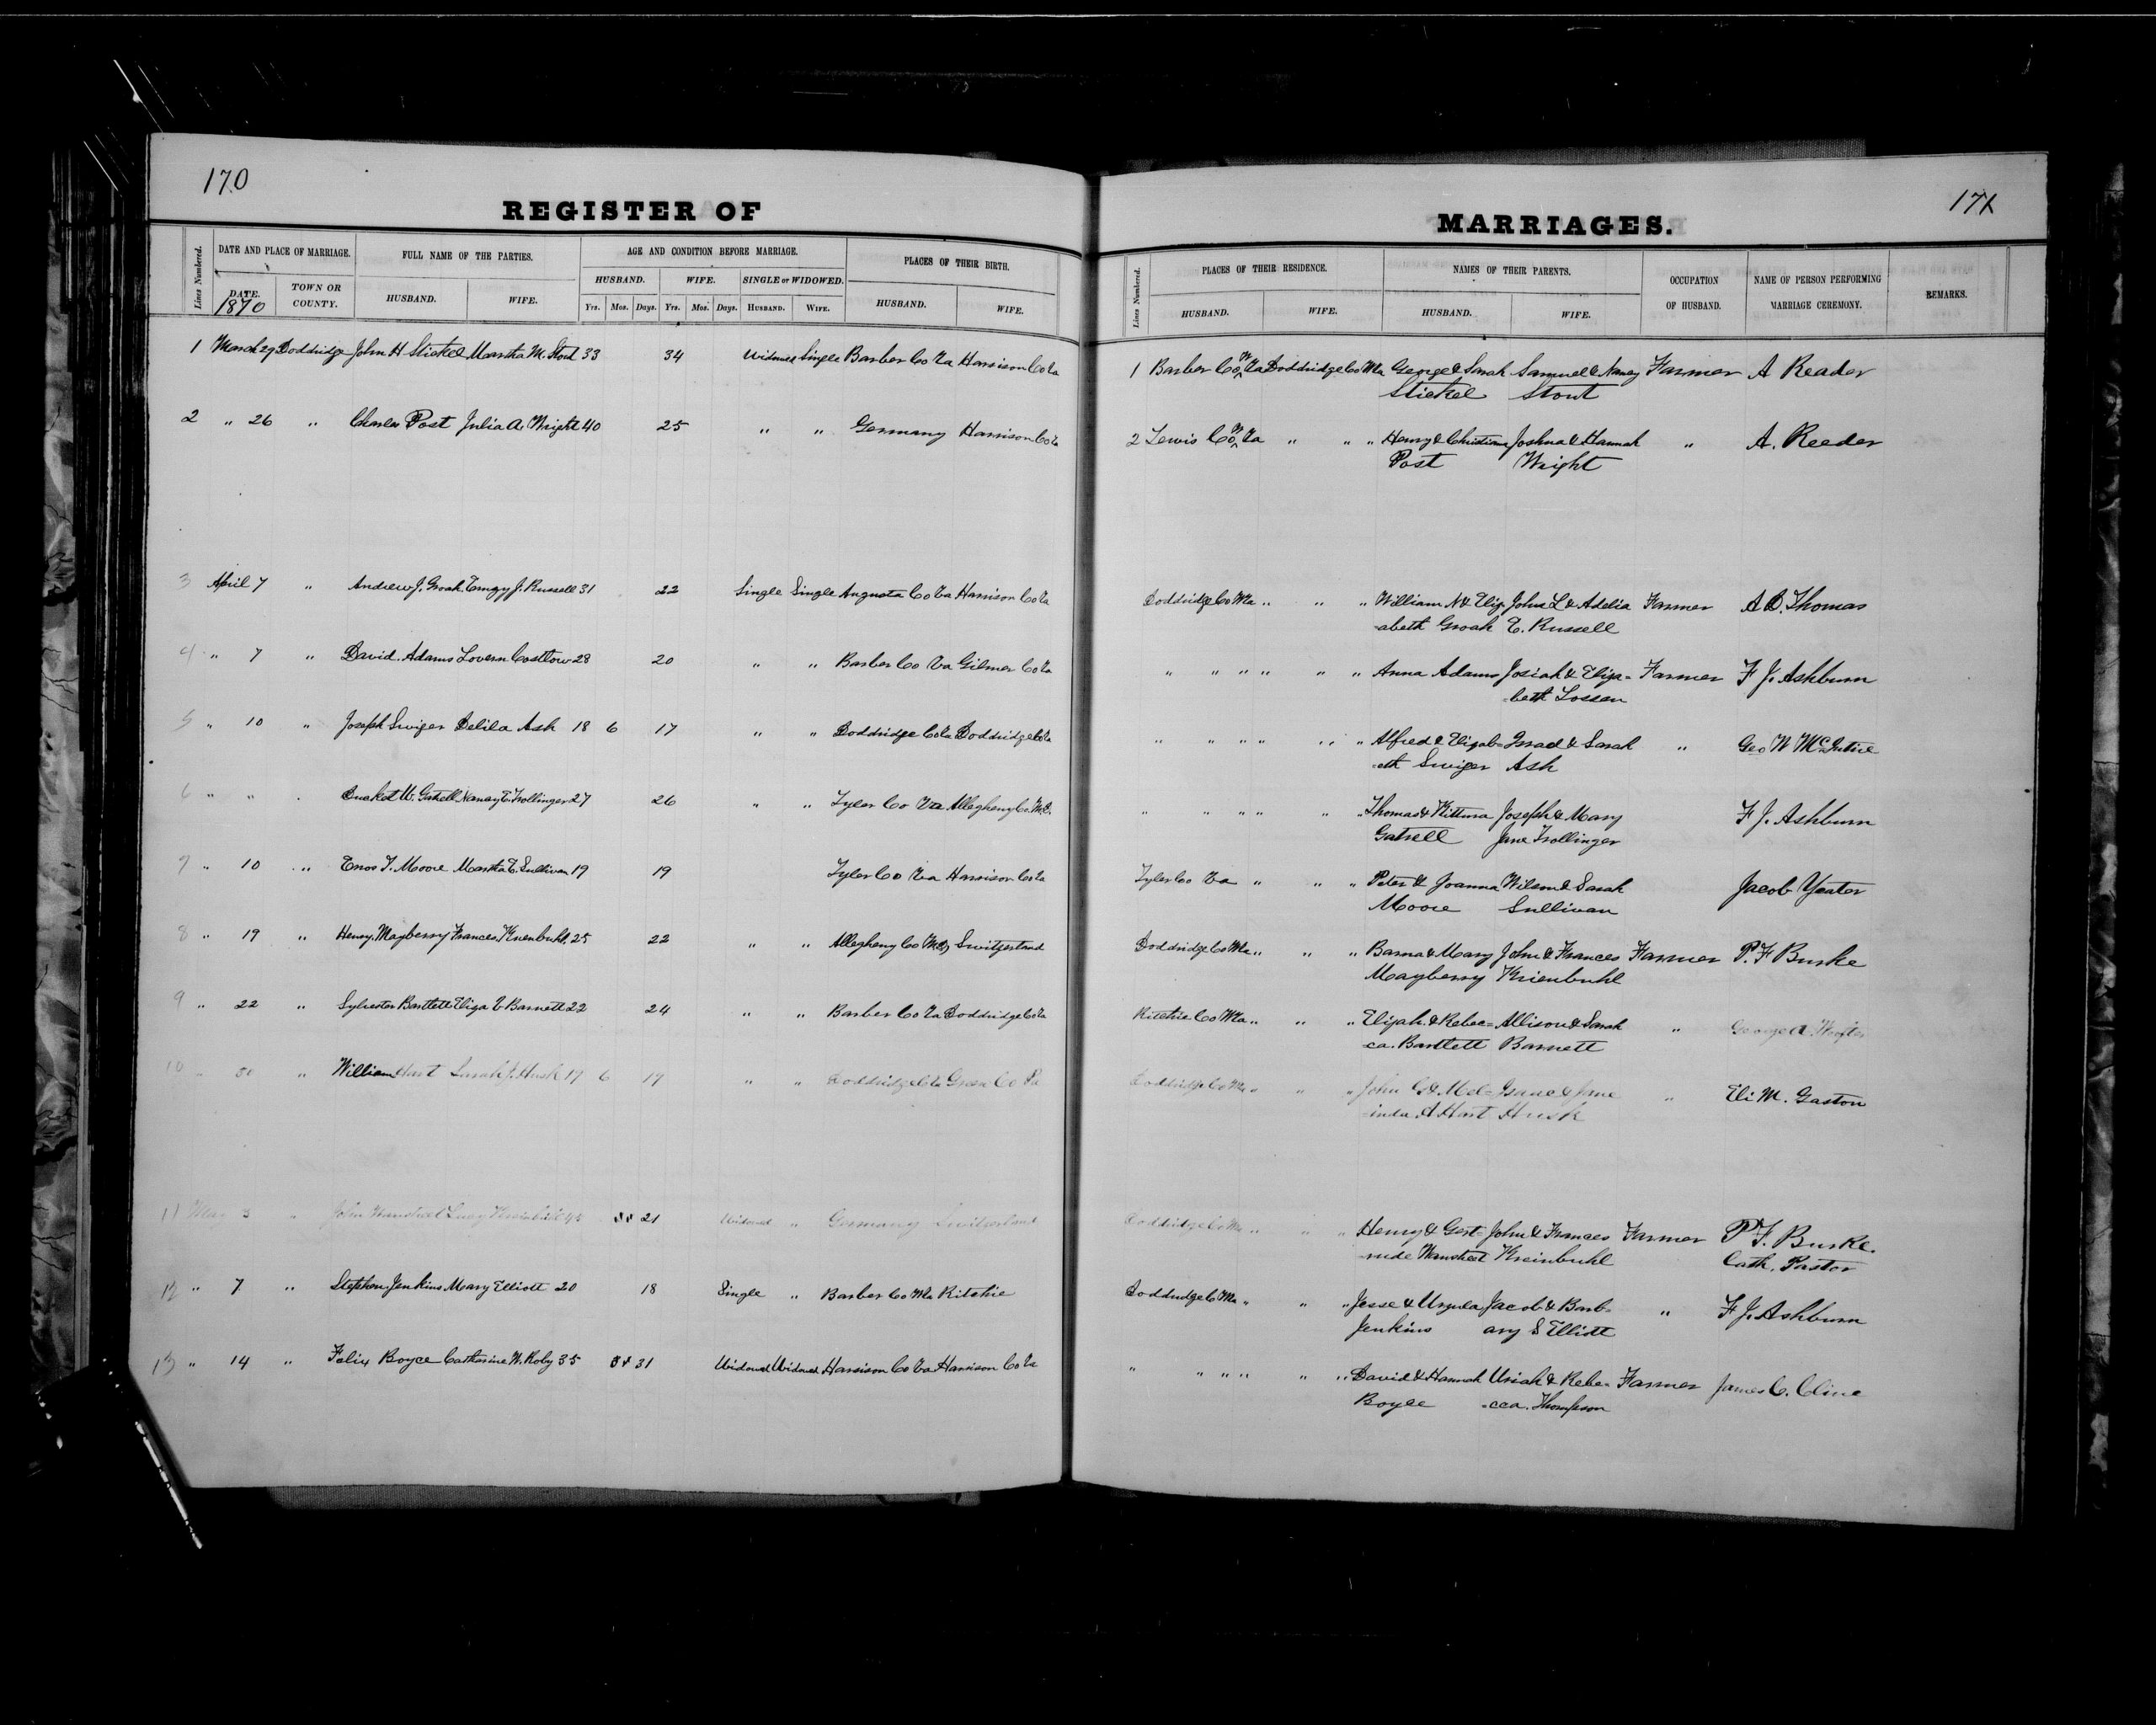 170
REGISTER OF
Lines Numbered.
DATE AND PLACE OF MARRIAGE.
FULL NAME OF THE PARTIES.
AGE AND CONDITION BEFORE MARRIAGE.
PLACES OF THEIR BIRTH.
HUSBAND. WIFE. SINGLE or WIDOWED.
DATE. TOWN OR COUNTY. HUSBAND. WIFE. Yrs. Mos. Days. Yrs. Mos. Days. HUSBAND. WIFE. HUSBAND. WIFE.
1870
1 March 29 Doddridge John H Stickel Martha M. Stout 33 34 Widowed Single Barber Co Va Harrison Co Va
2 " 26 " Charles Post Julia A. Wright 40 25 " " Germany Harrison Co Va
3 April 7 " Andrew J. Groah J. Russell 31 22 Single Single Augusta Co Va Harrison Co Va
4 " 7 " David Adams Lovern Costlow 28 20 " " Barber Co Va Gilmer Co Va
5 " 10 " Joseph Swiger Delila Ash 18 6 17 " " Doddridge Co Va Doddridge Co Va
6 " " . W. Gatrell Nancy E. Trollinger 27 26 " " Tyler Co Va Allegheny Co. M.D.
7 " 10 " Enos T. Moore Martha E. Sullivan 19 19 Tyler Co Va Harrison Co Va
8 " 19 " Henry Mayberry Frances Krienbuhl 25 22 " " Allegheny Co Md Switzerland
9 " 22 " Sylvester Bartlett Eliza V Barnett 22 24 " " Barber Co Va Doddridge Co Va
10 " 30 " William Hart Sarah J. Husk 19 6 19 " " Doddridge Co Va Green Co Pa
11 May 3 " John Wanstreet Lucy Kreinbuhl 45 21 Widowed " Germany Switzerland
12 " 7 " Stephen Jenkins Mary Elliott 20 18 Single " Barber Co Wva Ritchie
13 " 14 " Felix Boyce Catharine W. Roby 35 31 Widowed Widowed Harrison Co Va Harrison Co Va
171
MARRIAGES.
Lines Numbered.
PLACES OF THEIR RESIDENCE.
NAMES OF THEIR PARENTS.
OCCUPATION OF HUSBAND.
NAME OF PERSON PERFORMING MARRIAGE CEREMONY.
REMARKS.
HUSBAND. WIFE. HUSBAND. WIFE.
1 Barber Co W Va Doddridge Co Wva George & Sarah Samuel & Nancy Farmer A Reader
Stickel Stout
2 Lewis Co W Va " " " Henry & Christiana Joshua & Hannah " A. Reeder
Post Wright
Doddridge Co Wva " " " William N & Eliz- John L & Adelia Farmer A. D. Thomas
-abeth Groah E. Russell
" " " " " " Anna Adams Josiah & Eliza- Farmer F J. Ashburn
-beth Lossen
" " " " " " Alfred & Elizab- Israel & Sarah " Geo W McIntire
-eth Swiger Ash
" " " " " " Thomas & Kittura Joseph & Mary F J. Ashburn
Gatrell Jane Trollinger
Tyler Co Va " " " Peter & Joanna Wilson & Sarah Jacob Yeater
Moore Sullivan
Doddridge Co Wva " " " Barna & Mary John & Frances Farmer P. F Burke
Mayberry Krienbuhl
Ritchie Co Wva " " " Elijah & Rebec- Allison & Sarah " George A. Woofter
-ca. Bartlett Barnett
Doddridge Co Wva " " " John C & Mel- Isaac & Jane " Eli M. Gaston
-inda A Hart Husk
Doddridge Co Wva " " " Henry & Gert- John & Frances Farmer P. F. Burke.
-rude Wanstreet Kreinbuhl Cath. Pastor
Doddridge Co Wva " " " Jesse & Ursula Jacob & Barb- " F J. Ashburn
Jenkins ary S Elliott
" " " " " " David & Hannah Uriah & Rebe- Farmer James C. Cline
Boyce -cca. Thompson